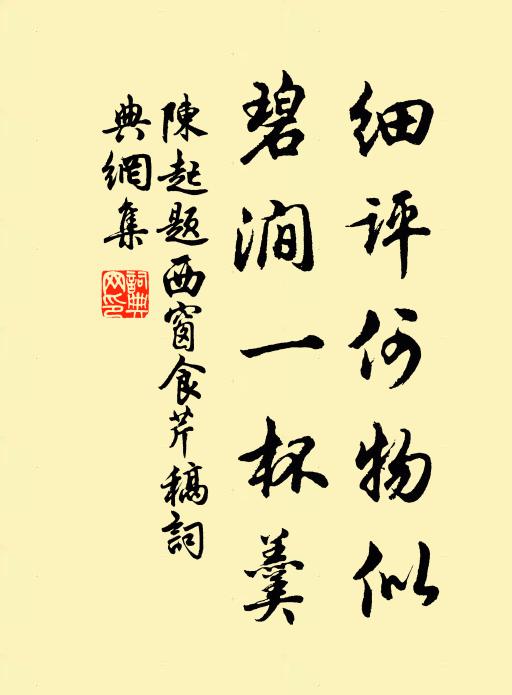 细评何物似
碧涧一杯羹
陳起题西窗食芹稿詞
典網集
詞典网印